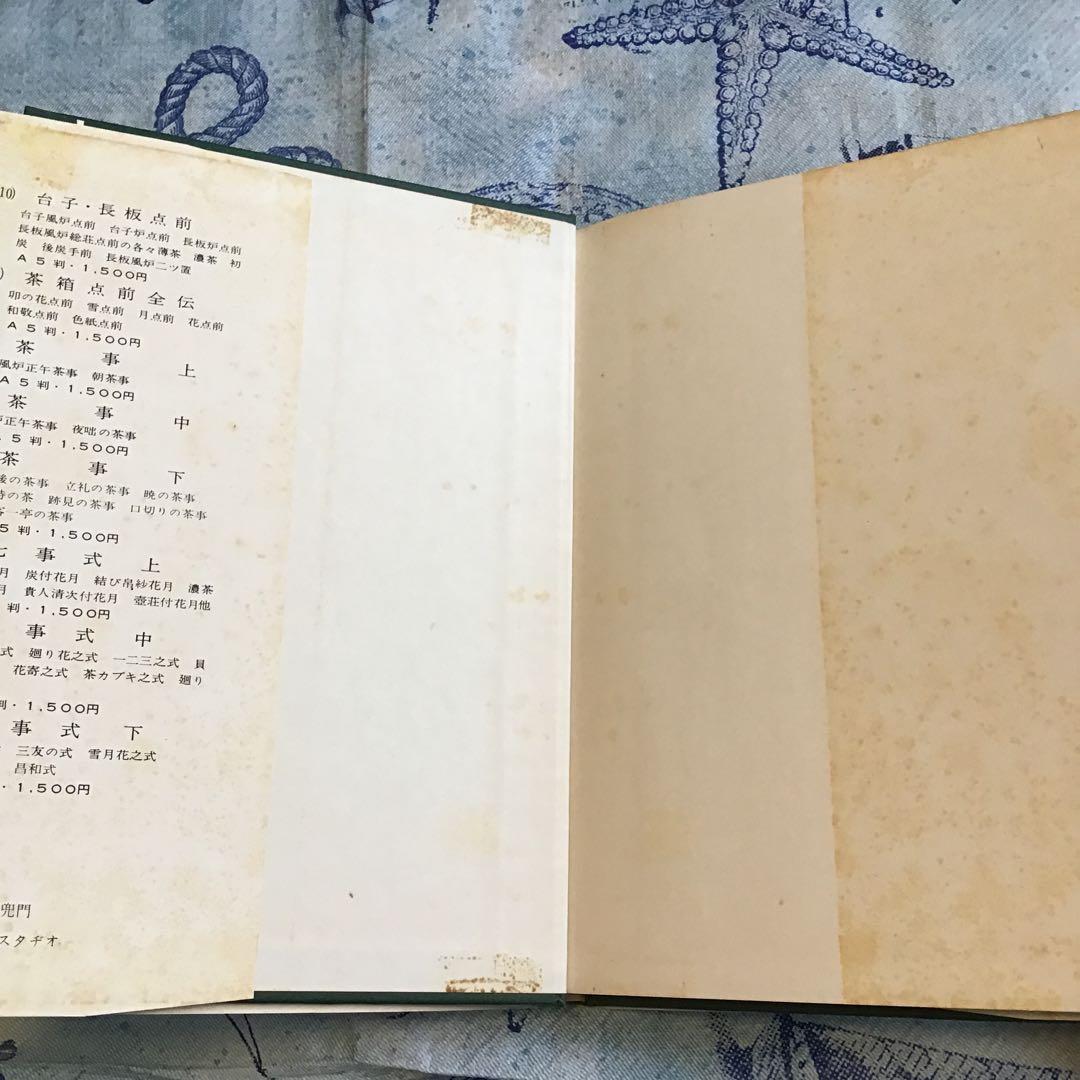 10) 台子・長板点前
台子風炉点前 台子炉点前 長板炉点前
長板風炉総荘点前の各々薄茶 濃茶 初
炭 後炭手前 長板風炉二ツ置
A5判・1,500円
) 茶箱点前全伝
卯の花点前 雪点前 月点前 花点前
和敬点前 色紙点前
A5判・1,500円
茶事 上
風炉正午茶事 朝茶事
A5判・1,500円
茶事 中
正午茶事 夜咄の茶事
5判・1,500円
茶事 下
後の茶事 立礼の茶事 暁の茶事
時の茶 跡見の茶事 口切りの茶事
一亭の茶事
5判・1,500円
七事式 上
月 炭付花月 結び帛紗花月 濃茶
月 貴人清次付花月 壺荘付花月他
判・1,500円
事式 中
式 廻り花之式 一二三之式 貝
花寄之式 茶カブキ之式 廻り
判・1,500円
事式 下
三友の式 雪月花之式
昌和式
・1,500円
兜門
スタヂオ